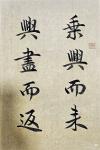 乗興而来
興盡而返